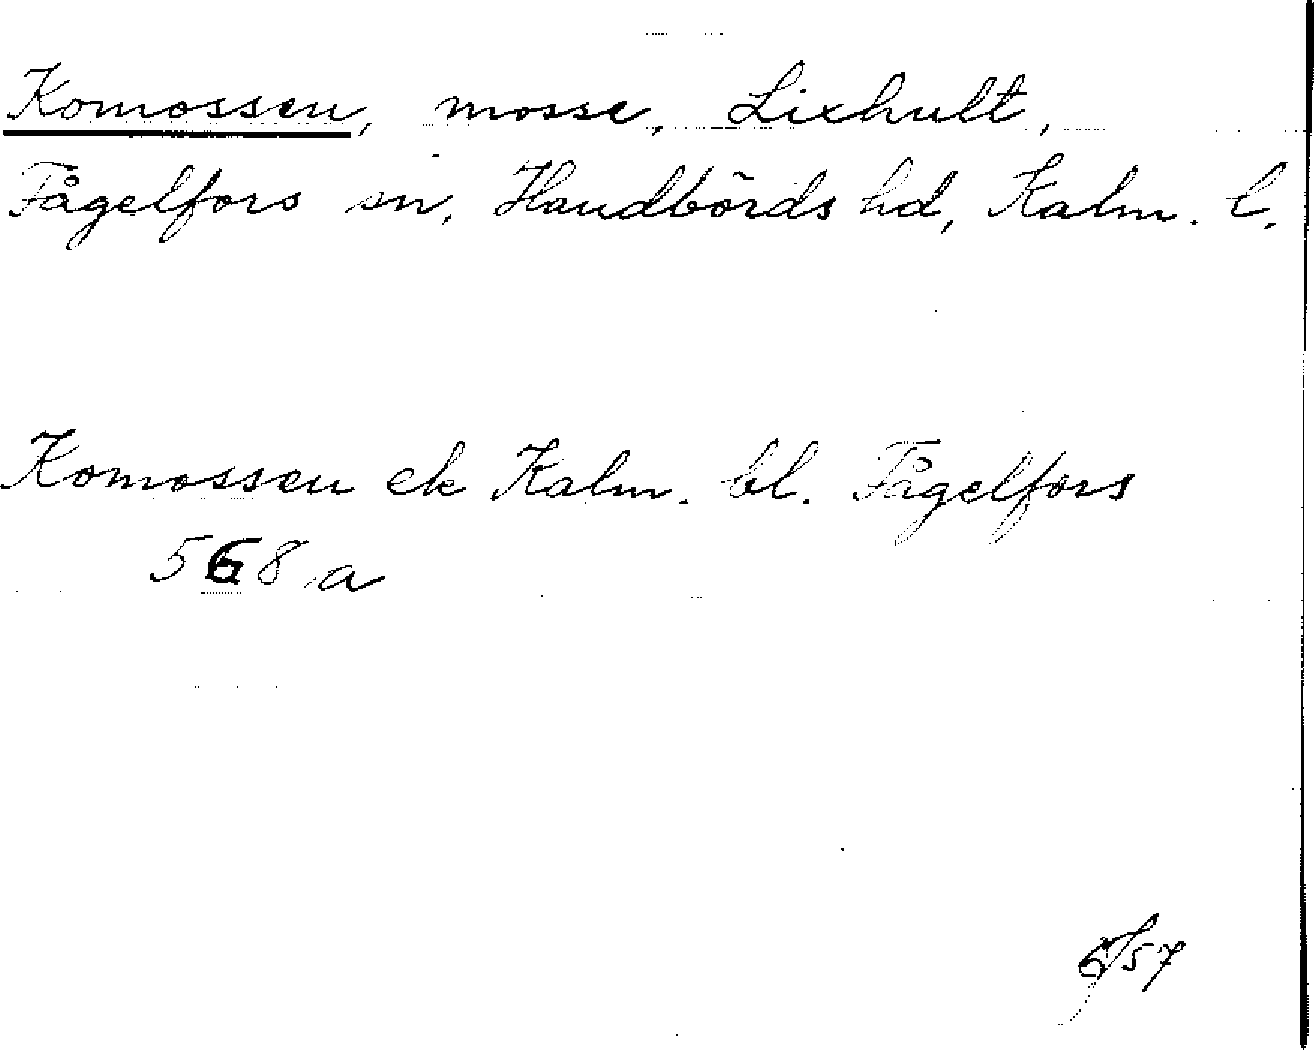 Komossen, mosse, Lixhult,
Fågelfors sn, Handbörds hd, Kalm. l.
Komossen ek Kalm. bl. Fågelfors
568 a